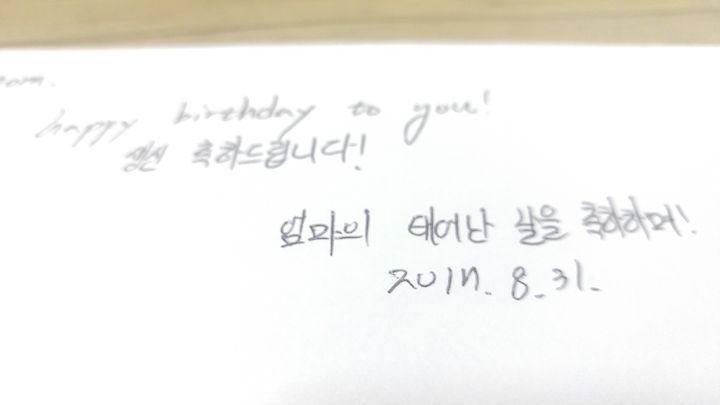 happy birthday to you!
생신 축하드립니다!
엄마의 태어난 날을 축하하며!
2017. 8. 31.